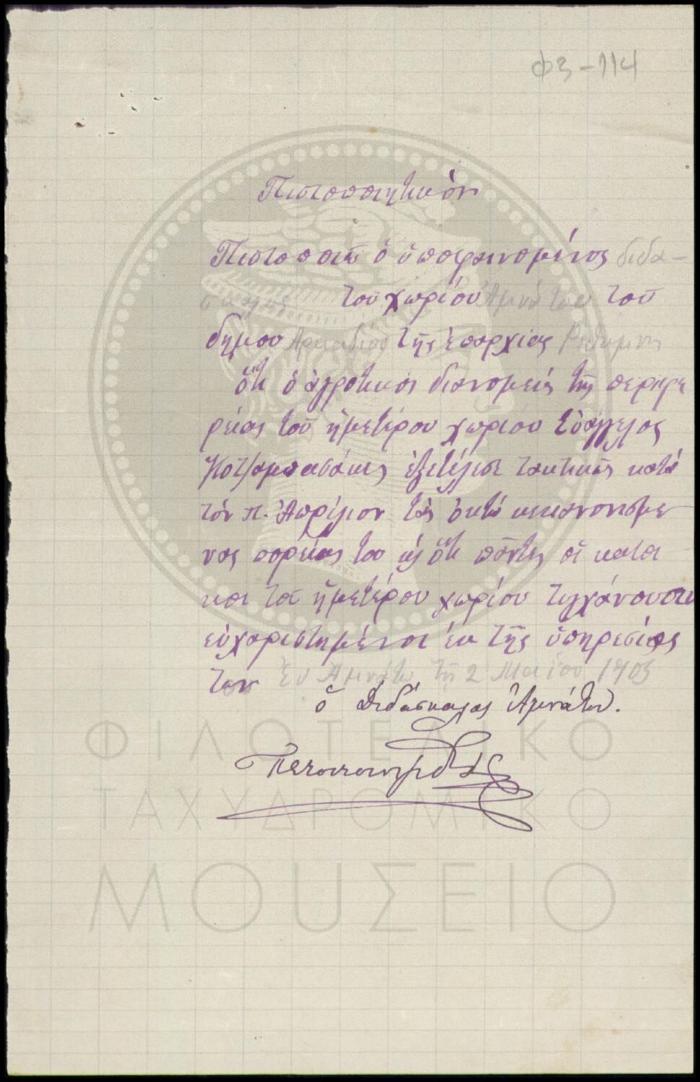 Φ3-114
Πιστοποιητικὸν
Πιστοποιῶ ὁ ὑποφαινόμενος διδα-
σκαλος του χωρίου Ἀμνάτου του
δημου Αρκαδίου τῆς ἐπαρχίας Ρεθύμνης
ὅτι ὁ ἀγροτικος διανομεὶς τῆς περιφε
ρείας τοῦ ἡμετέρου χωρίου Εὐάγγελος
Κοτζαμπασάκις ἐξετέλεσε τακτικῶς κατὰ
τὸν π. Ἀπρίλιον τὰς ὀκτὼ κεκανονισμε
νας πορείας του κ ὅτι πάντες οἱ κατοι
κοι του ἡμετέρου χωρίου τυγχάνουσιν
εὐχαριστημένοι ἐκ τῆς ὑπηρεσίας
του Ἐν Αμνάτω τῆ 2 Μαίου 1905
ὁ Διδάσκαλος Ἀμνάτου.
ΦΙΛΟΤΕΛΙΚΟ
ΤΑΧΥΔΡΟΜΙΚΟ
ΜΟΥΣΕΙΟ